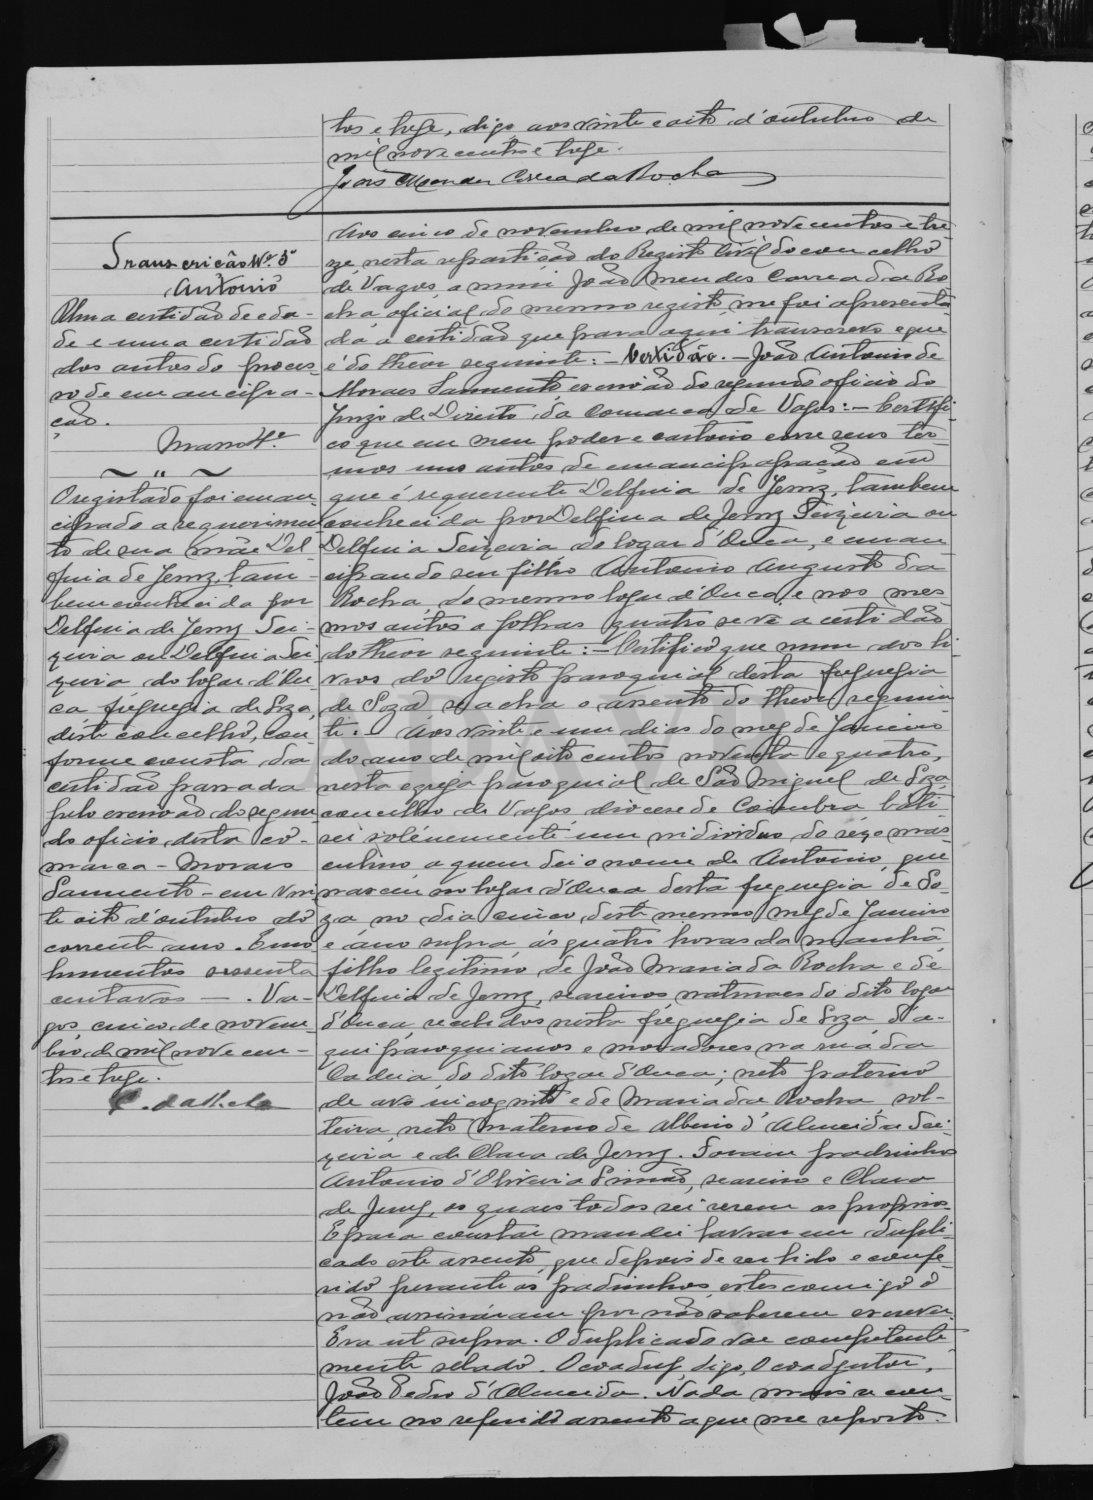 tos e treze, digo, aos vinte e oito d'outubro de
mil novecentos e treze.
João Mendes Correa da Rocha
Transcrição Nº 5
Antonio
Uma certidão de eda-
de e uma certidão
dos autos do proces-
so de emancipa-
ção.
Masso 4º
O registado foi eman
cipado a requerimen
to de sua mãe Del-
fina de Jesus, tam-
bem conhecida por
Delfina de Jesus Sei-
xeiria ou Delfina Sei
xeiria do logar d'Ou-
ca freguesia de Soza,
deste concelho, con-
forme consta da
certidão passada
pelo escrivão do segun
do oficio desta co-
marca - Moraes
Sarmento - em vin
te oito d'outubro do
corrente ano. Emo
lumentos sessenta
centavos - . Va-
gos, cinco de novem-
bro de mil nove cen-
tos e treze.
C. da Rocha
Aos cinco de novembro de mil novecentos e tre
ze nesta repartição do Registo Civil do concelho
de Vagos, a mim João Mendes Correa da Ro
cha oficial do mesmo registo me foi apresenta
da a certidão que para aqui transcrevo e que
é do theor seguinte: - Certidão. - João Antonio de
Moraes Sarmento, escrivão do segundo oficio do
Juizo de Direito da Comarca de Vagos: - Certifi-
co que em meu poder e cartorio corre seus ter-
mos uns autos de emancipapação em
que é requerente Delfina de Jesus, tambem
conhecida por Delfina de Jesus Seixeiria ou
Delfina Seixeiria do logar d'Ouca, e eman
cipando seu filho Antonio Augusto da
Rocha, do mesmo logar d'Ouca, e nos mes
mos autos a folhas quatro se vê a certidão
do theor seguinte: - Certifico que num dos li
vros do registo paroquial desta freguesia
de Soza se acha o assento do theor seguin
te: Aos vinte e um dias do mez de Janeiro
do ano de mil oito centos noventa e quatro,
nesta egreja paroquial de São Miguel de Soza
concelho de Vagos, diocese de Coimbra, bati
sei solénemente um individuo do sexo mas
culino a quem dei o nome de Antonio, que
nasceu no logar d'Ouca desta freguesia de So-
za no dia cinco, deste mesmo mez de Janeiro
e ano supra, ás quatro horas da manhã
filho legitimo de João Maria da Rocha e de
Delfina de Jesus, seareiros, naturaes do dito logar
d'Ouca, recebidos nesta freguesia de Soza, d'a-
qui paroquianos e moradores na rua da
Cadeia, do dito logar d'Ouca; neto paterno
de avô incognito e de Maria da Rocha, sol-
teira, neto materno de Albino d'Almeida Sei-
xeiria e de Clara de Jesus. Foram padrinhos
Antonio d'Oliveira Simão, seareiro e Clara
de Jesus, os quaes todos sei serem os proprios.
E para constar mandei lavrar em dupli-
cado este assento, que depois de ser lido e confe-
rido perante os padrinhos, estes comigo o
não assináram por não saberem escrever.
Era ut supra. O duplicado vae competente
mente selado. O coadug, digo, O coadjutor,
João Pedro d'Almeida. Nada mais se con-
tem no referido assento a que me reporto.